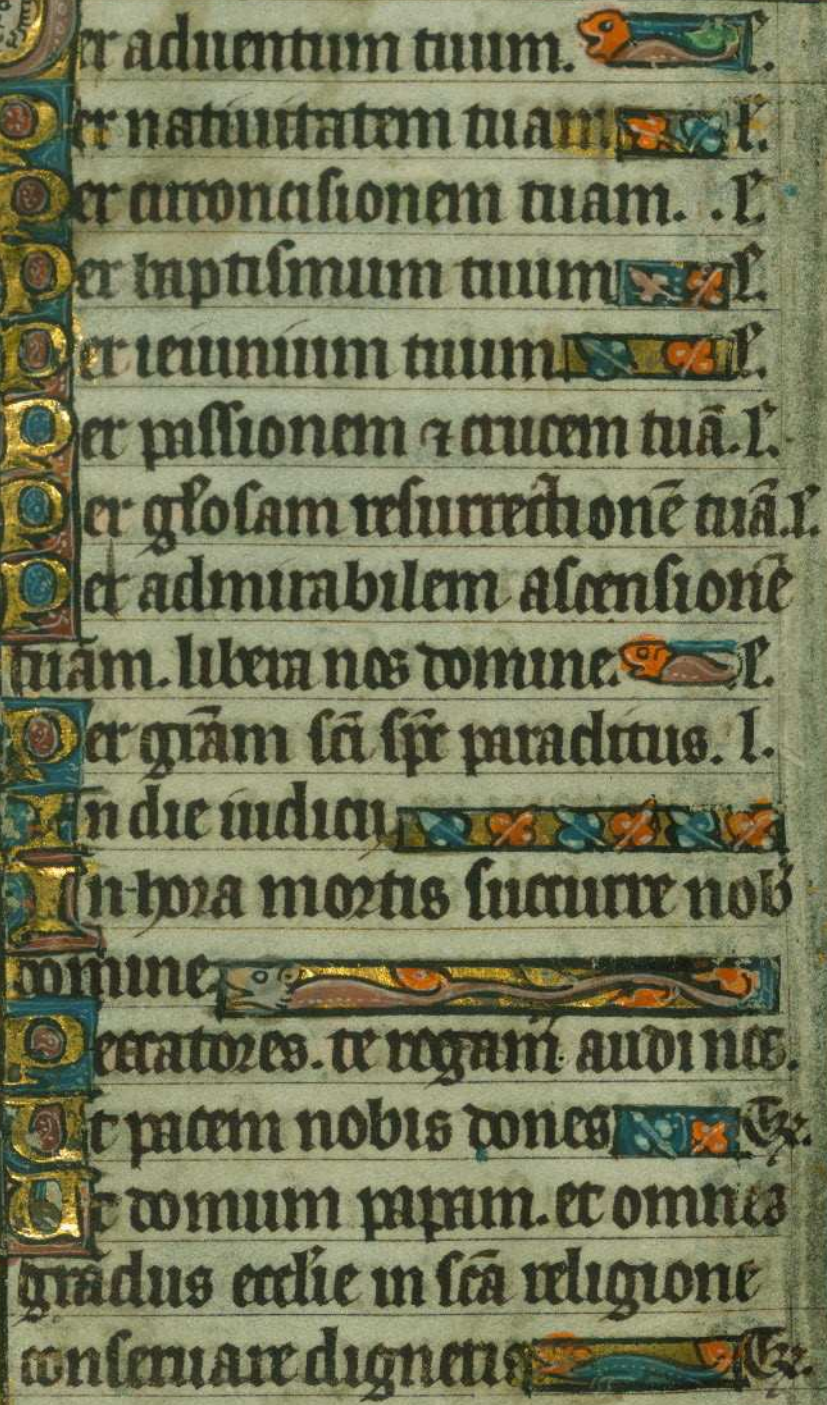 Per aduentum tuum. l'.
Per natiuitatem tuam l'.
Per circoncisionem tuam. . l'.
Per baptismum tuum l'.
Per ieiunium tuum l'.
Per passionem ⁊ crucem tuā. l'.
Per gl'osam resurrectionē tuā. l'.
Per admirabilem ascensionē
tuam. libera nos domine. l'.
Per grām sc̄i sp̄c paraclitus. l.
In die iudicii
In hora mortis succurre nob'
domine
Peccatores. te rogam̄ audi nos.
Ut pacem nobis dones Te.
Ut domum papam. et omnes
gradus eccl'ie in sc̄ā religione
conseruare digneris Te.